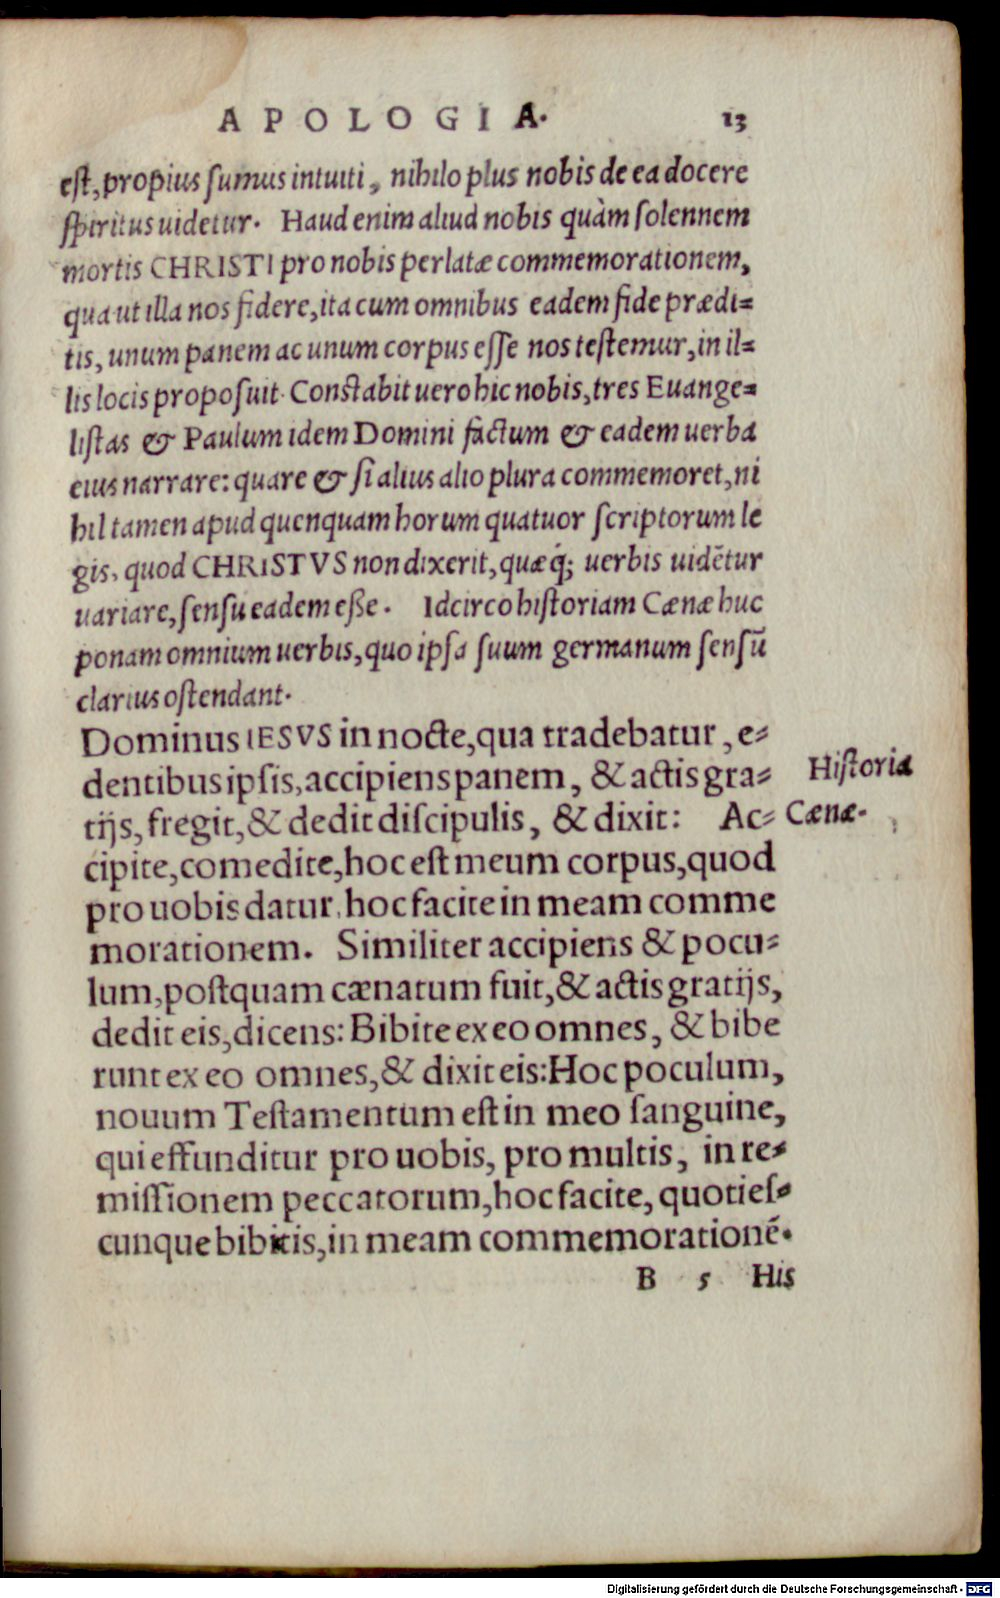 APOLOGIA. 13
est, propius sumus intuiti, nihilo plus nobis de ea docere
spiritus uidetur. Haud enim aliud nobis quàm solennem
mortis CHRISTI pro nobis perlatæ commemorationem,
qua ut illa nos fidere, ita cum omnibus eadem fide prædi=
tis, unum panem ac unum corpus esse nos testemur, in il=
lis locis proposuit. Constabit uero hic nobis, tres Euange=
listas & Paulum idem Domini factum & eadem uerba
eius narrare: quare & si alius alio plura commemoret, ni
hil tamen apud quenquam horum quatuor scriptorum le
gis, quod CHRISTVS non dixerit, quæq́; uerbis uidētur
uariare, sensu eadem eße. Idcirco historiam Cænæ huc
ponam omnium uerbis, quo ipsa suum germanum sensū
clarius ostendant.
Dominus IESVS in nocte, qua tradebatur, e=
dentibus ipsis, accipiens panem, & actis gra=
tijs, fregit, & dedit discipulis, & dixit: Ac=
cipite, comedite, hoc est meum corpus, quod
pro uobis datur, hoc facite in meam comme
morationem. Similiter accipiens & pocu=
lum, postquam cænatum fuit, & actis gratijs,
dedit eis, dicens: Bibite ex eo omnes, & bibe
runt ex eo omnes, & dixit eis: Hoc poculum,
nouum Testamentum est in meo sanguine,
qui effunditur pro uobis, pro multis, in re=
missionem peccatorum, hoc facite, quoties=
cunque bibitis, in meam commemorationē.
Historia
Cænæ.
B 5 His
Digitalisierung gefördert durch die Deutsche Forschungsgemeinschaft - DFG